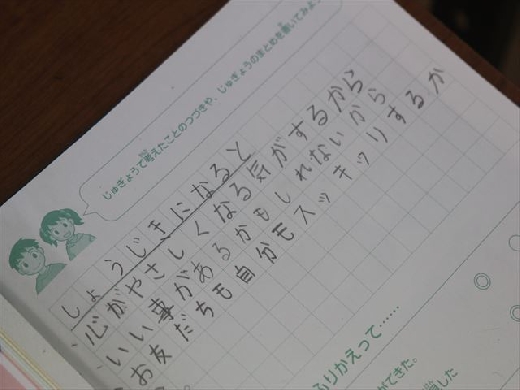 じゅぎょうで考えたことのつづきや、じゅぎょうのまとめを書いてみよう
しょうじきになると
・心がやさしくなる気がするから
・いい事があるかもしれないから
・お友だちも自分もスッキッリするか
ふりかえって……
ができた。